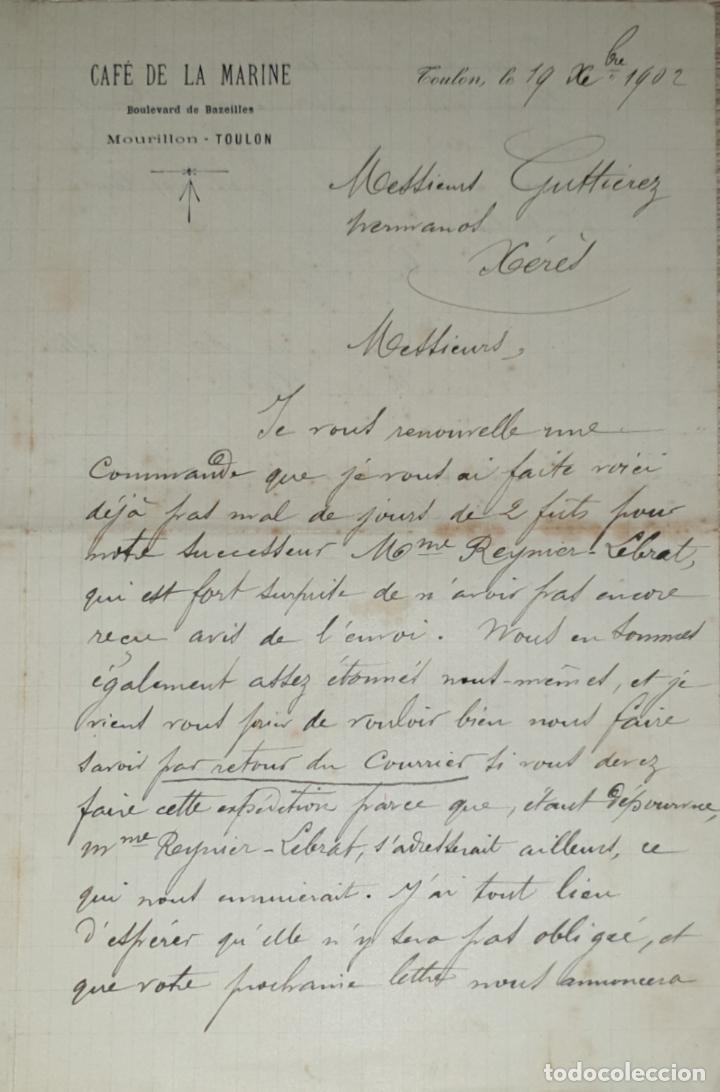 CAFÉ DE LA MARINE
Boulevard de Bazeilles
Mourillon - TOULON
Toulon, le 19 Xbre 1902
Messieurs Guttierez
hermanos
Xérès
Messieurs,
Je vous renouvelle une
commande que je vous ai faite voici
déjà pas mal de jours de 2 futs pour
notre successeur Mme Reynier-Lebrat,
qui est fort surprise de n'avoir pas encore
reçu avis de l'envoi. Nous en sommes
également assez étonnés nous-mêmes, et je
viens vous prier de vouloir bien nous faire
savoir par retour du Courrier si vous devez
faire cette expédition parce que, étant dépourvue,
Mme Reynier-Lebrat, s'adresserait ailleurs, ce
qui nous ennuierait. J'ai tout lieu
d'espérer qu'elle n'y sera pas obligée, et
que votre prochaine lettre nous annoncera
todocoleccion
todocoleccion.net